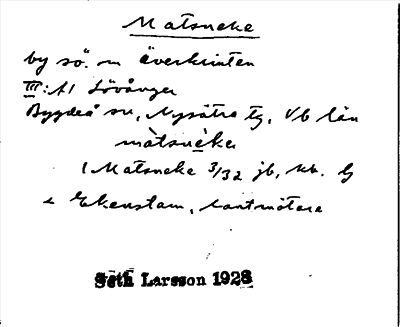 Matsneke
by sö. om överkanten
III:A1 Lövånger
Bygdeå sn, Nysätra tg, Vb län
màtsnèka
1 Matsneke 3/32 jb, kb. G
Ekenstam, lantmätare
Seth Larsson 1928